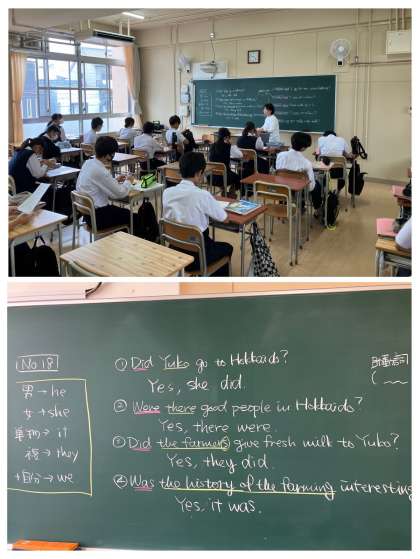 No 18
男→he
女→she
単物→it
複→they
+自分→we
① Did Yuko go to Hokkaido?
Yes, she did.
② Were there good people in Hokkaido?
Yes, there were.
③ Did the farmers give fresh milk to Yuko?
Yes, they did.
④ Was the history of the farming interesting
Yes, it was.
動詞